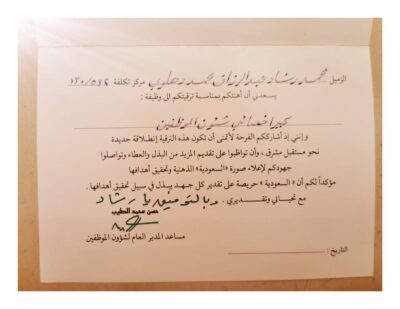 الزميل محمد رشاد عبدالرزاق محمد دحلوي مركز تكلفة ١٣٠/٥٤٢
يسعدني أن أهنئكم بمناسبة ترقيتكم الى وظيفة :
كبير أخصائي شئون الموظفين
وإنني إذ أشارككم الفرحة لأتمنى أن تكون هذه الترقية إنطلاقة جديدة
نحو مستقبل مشرق ، وأن تواظبوا على تقديم المزيد من البذل والعطاء وتواصلوا
جهودكم لإعلاء صورة «السعودية» الذهنية وتحقيق أهدافها
مؤكداً لكم أن «السعودية» حريصة على تقدير كل جهد يبذل في سبيل تحقيق أهدافها .
مع تحياتي وتقديري ، وبالتوفيق يا رشاد
حسن محمد الطيب
مساعد المدير العام لشؤون الموظفين
التاريخ :